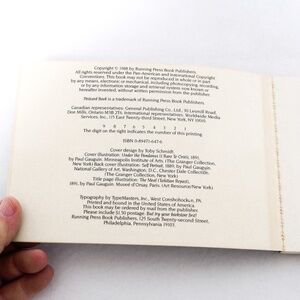 Copyright © 1988 by Running Press Book Publishers.
All rights reserved under the Pan-American and International Copyright
Conventions. This book may not be reproduced in whole or in part
by any means, electronic or mechanical, including photocopying, recording,
or by any information storage and retrieval system now known or
hereafter invented, without written permission from the publisher.
Postcard Book is a trademark of Running Press Book Publishers.
Canadian representatives: General Publishing Co., Ltd., 30 Lesmill Road,
Don Mills, Ontario M3B 2T6. International representatives: Worldwide Media
Services, Inc., 115 East Twenty-third Street, New York, NY 10010.
9 8 7 6 5 4 3 2 1
The digit on the right indicates the number of this printing.
ISBN 0-89471-647-6
Cover design by Toby Schmidt
Cover illustration: Under the Pandanus (I Raro Te Oviri), 1891,
by Paul Gauguin. Minneapolis Institute of Arts. (The Granger Collection,
New York) Back cover illustration: Self Portrait, 1889, by Paul Gauguin.
National Gallery of Art, Washington, D.C. Chester Dale Collection.
(The Granger Collection, New York)
Title page illustration: The Meal (Tahitian Repast),
1891, by Paul Gauguin. Museé d'Orsay, Paris. (Art Resource/New York)
Typography by TypeMasters, Inc., West Conshohocken, PA.
Printed and bound in the United States of America.
This book may be ordered by mail from the publisher.
Please include $1.50 postage. But try your bookstore first!
Running Press Book Publishers, 125 South Twenty-second Street,
Philadelphia, Pennsylvania 19103.